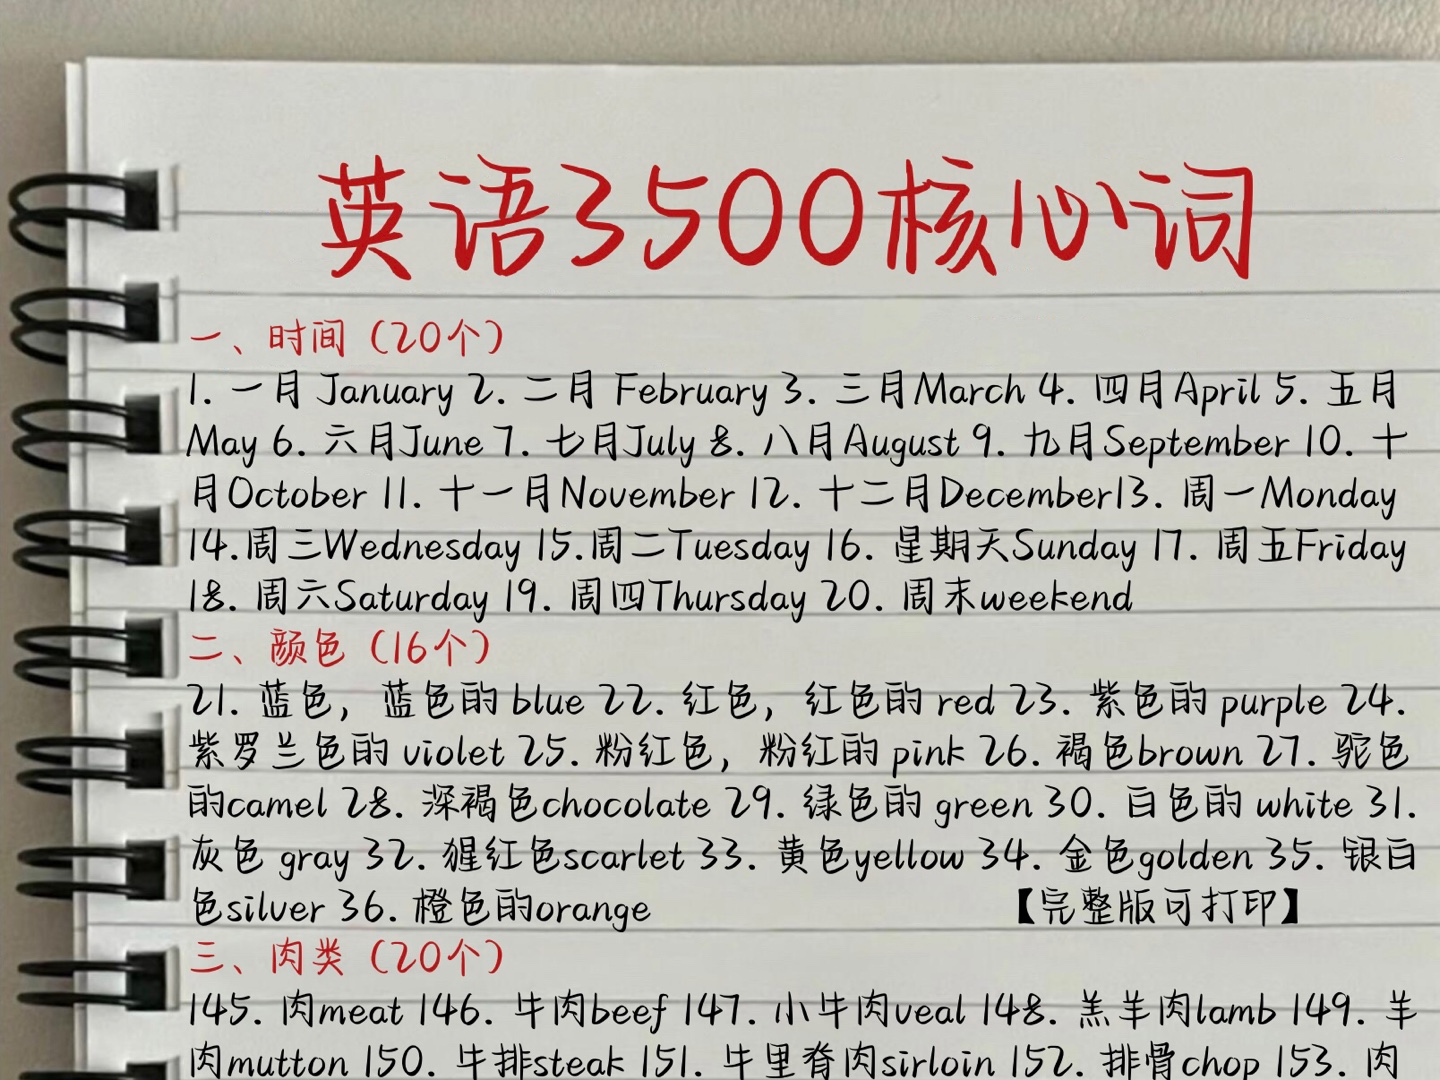 英语3500核心词
一、时间（20个）
1. 一月 January 2. 二月 February 3. 三月March 4. 四月April 5. 五月
May 6. 六月June 7. 七月July 8. 八月August 9. 九月September 10. 十
月October 11. 十一月November 12. 十二月December13. 周一Monday
14.周三Wednesday 15.周二Tuesday 16. 星期天Sunday 17. 周五Friday
18. 周六Saturday 19. 周四Thursday 20. 周末weekend
二、颜色（16个）
21. 蓝色，蓝色的 blue 22. 红色，红色的 red 23. 紫色的 purple 24.
紫罗兰色的 violet 25. 粉红色，粉红的 pink 26. 褐色brown 27. 驼色
的camel 28. 深褐色chocolate 29. 绿色的 green 30. 白色的 white 31.
灰色 gray 32. 猩红色scarlet 33. 黄色yellow 34. 金色golden 35. 银白
色silver 36. 橙色的orange 【完整版可打印】
三、肉类（20个）
145. 肉meat 146. 牛肉beef 147. 小牛肉veal 148. 羔羊肉lamb 149. 羊
肉mutton 150. 牛排steak 151. 牛里脊肉sirloin 152. 排骨chop 153. 肉